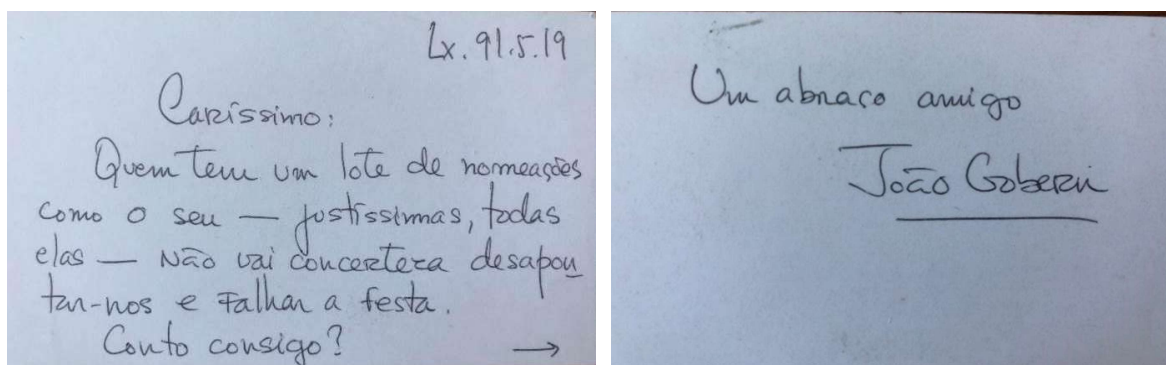 Lx. 91.5.19
Caríssimo:
Quem tem um lote de nomeações
como o seu — justíssimas, todas
elas — não vai concerteza desapon
tar-nos e falhar a festa.
Conto consigo? →
Um abraço amigo
João Gobern